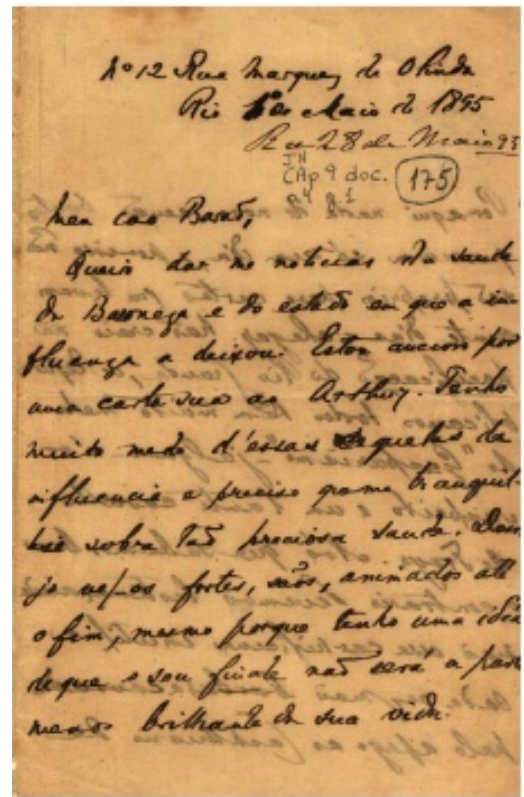 Nº 12 Rua Marquez de Olinda
Rio 1º de Maio de 1895
R a 28 de Maio 95
IH
CAp 9 doc. 175
4 8 1
Meu caro Barão,
Queira dar me noticias da saude
da Baroneza e do estado em que a in
fluenza a deixou. Estou ancioso por
uma carta sua ao Arthur. Tenho
muito medo d'essas sequelas da
influencia e preciso que me tranquil-
lise sobre tão preciosa saude. Dese
jo vel-os fortes, sãos, animados até
o fim, mesmo porque tenho uma idéa
de que o seu finale não será a parte
menos brilhante da sua vida.